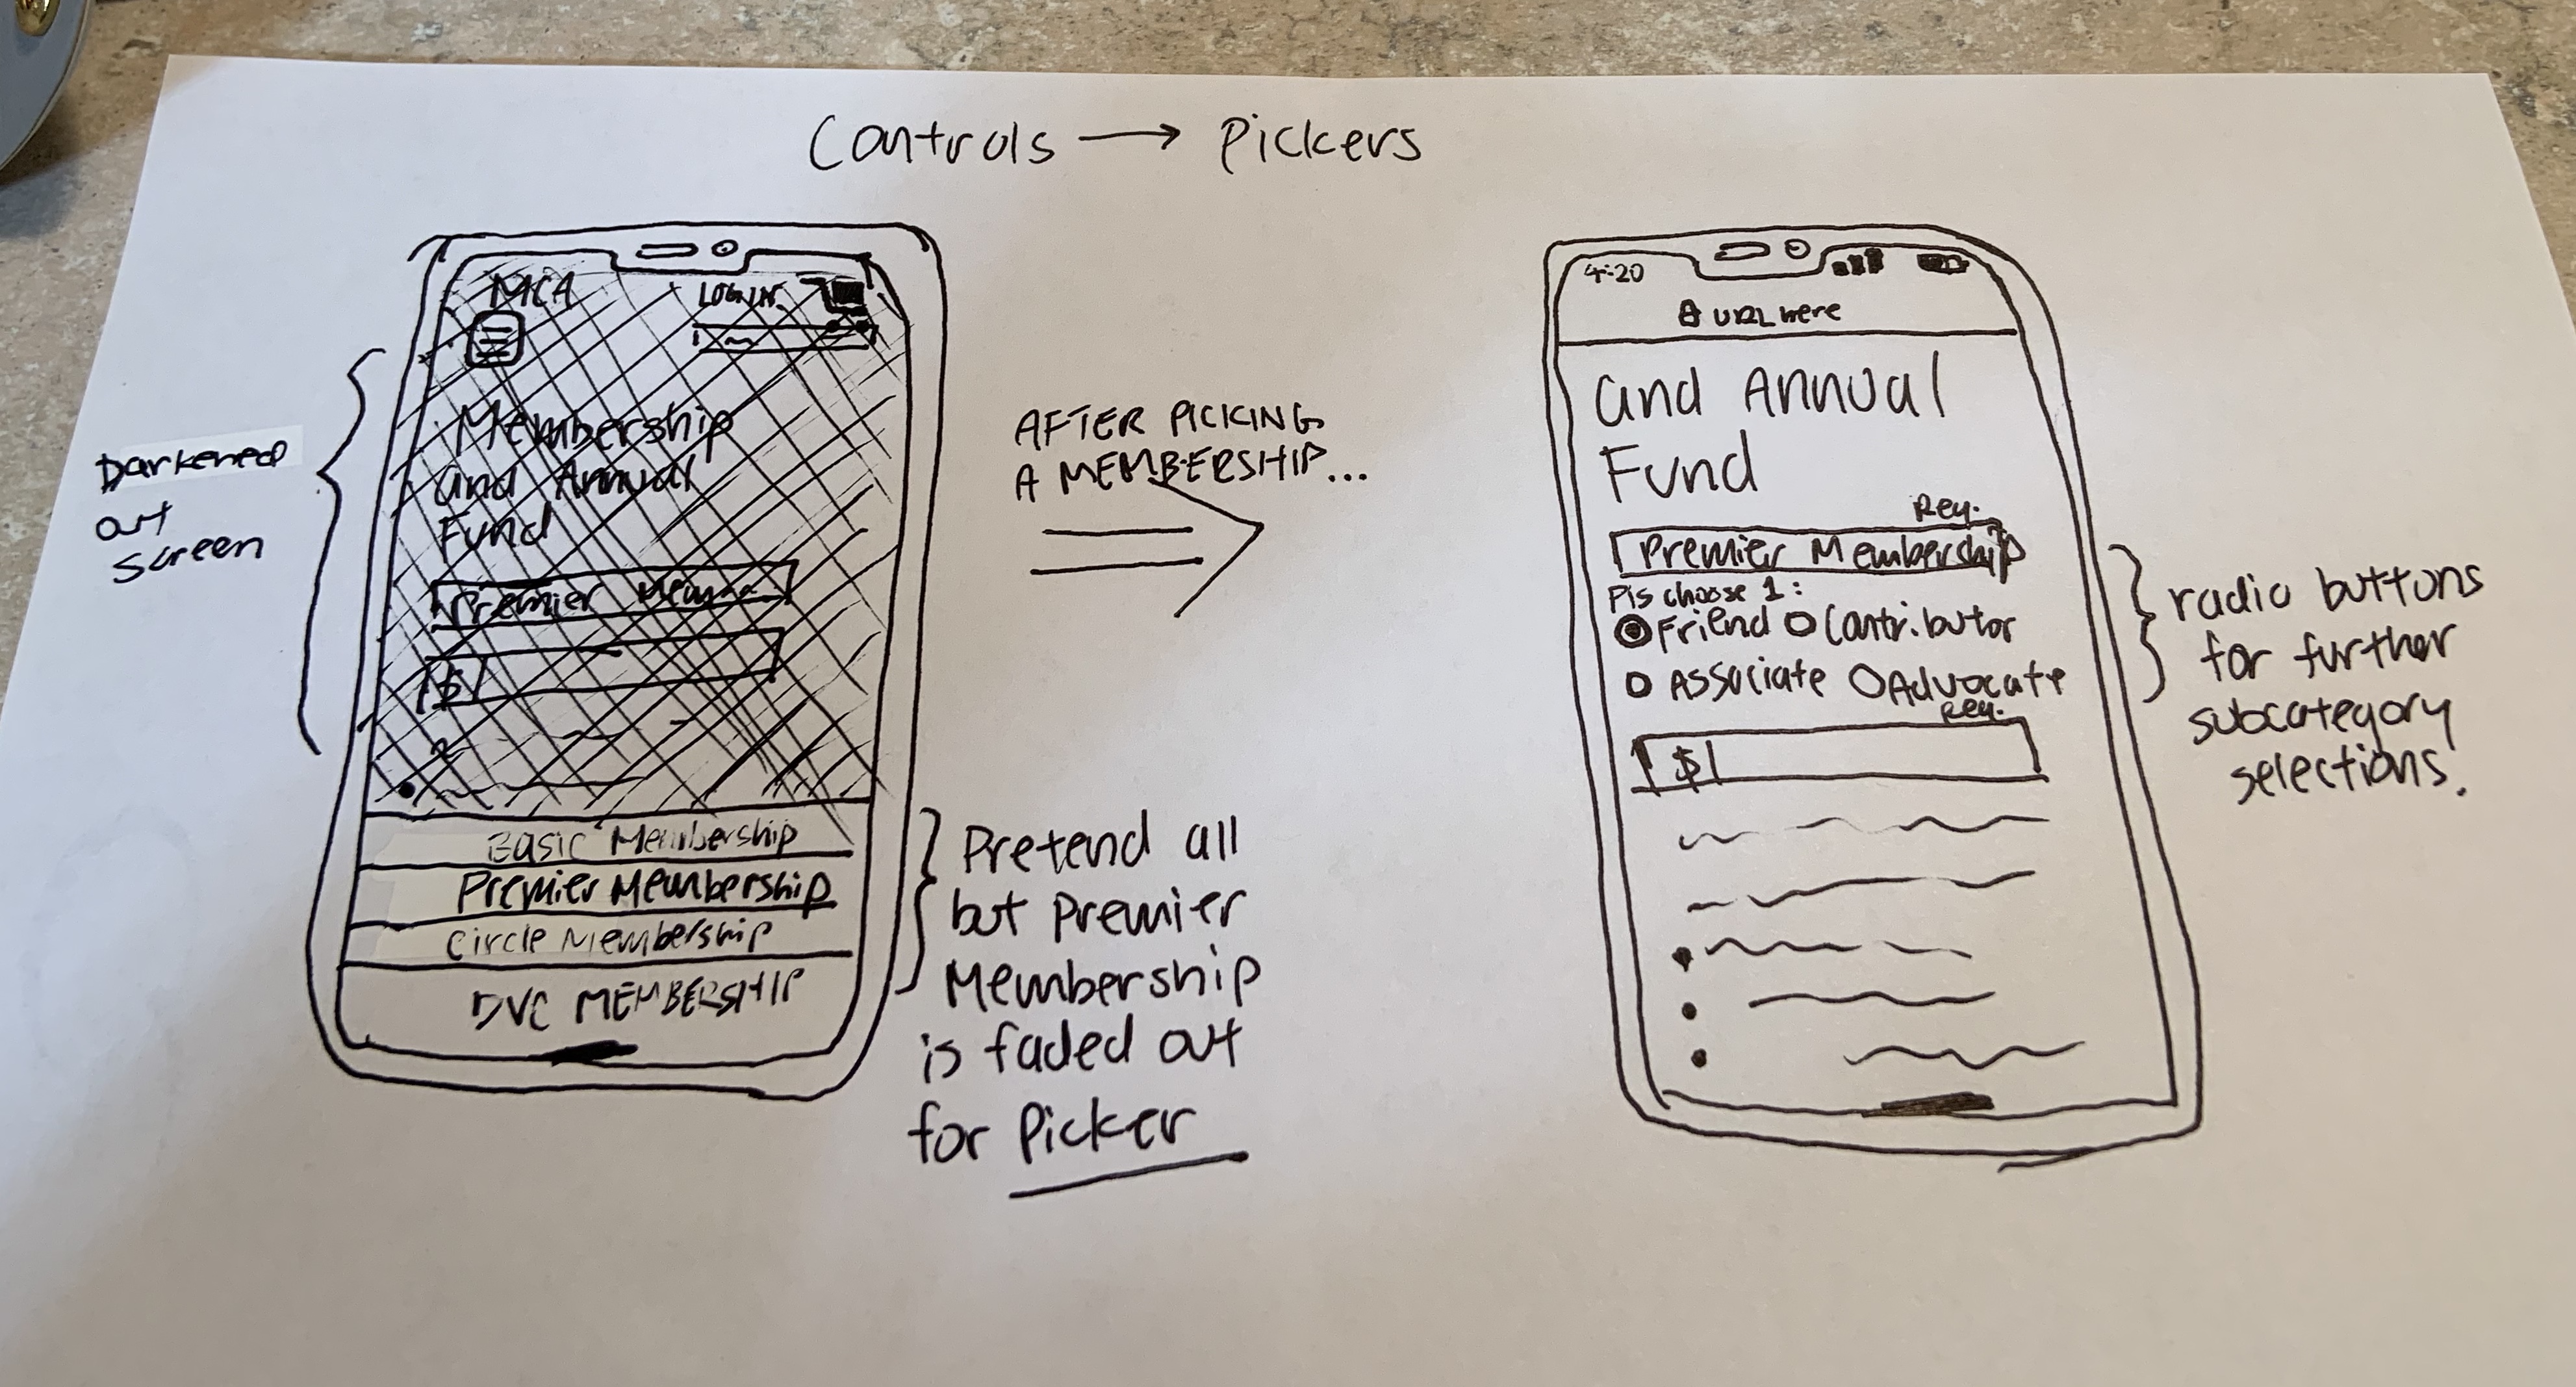 Controls → Pickers
Darkened
out
screen
MCA
LOGIN
Membership
and Annual
Fund
Premier Mem
$
Basic Membership
Premier Membership
Circle Membership
DVC MEMBERSHIP
AFTER PICKING
A MEMBERSHIP...
Pretend all
but Premier
Membership
is faded out
for Picker
4:20
URL here
and Annual
Fund
Req.
Premier Membership
Pls choose 1:
Friend Contributor
Associate Advocate
Req.
$
radio buttons
for further
subcategory
selections.